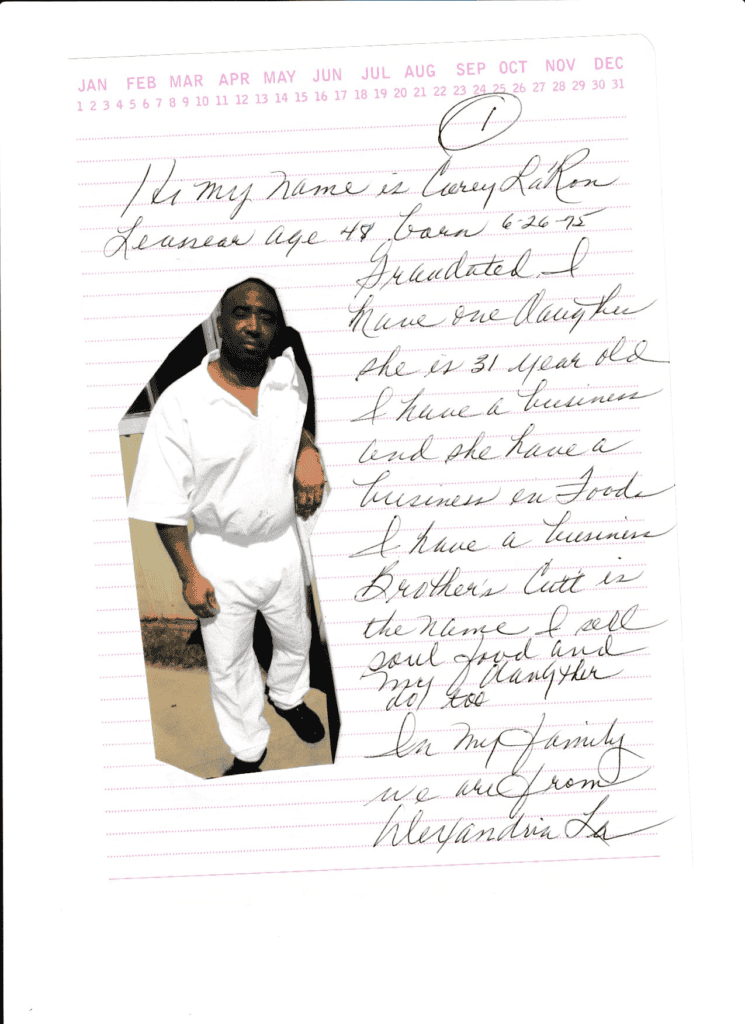 JAN FEB MAR APR MAY JUN JUL AUG SEP OCT NOV DEC
1 2 3 4 5 6 7 8 9 10 11 12 13 14 15 16 17 18 19 20 21 22 23 24 25 26 27 28 29 30 31
1
Hi my name is Carey La'Ron
age 48 born 6-26-75
Graudated I
have one daugther
she is 31 year old
I have a business
and she have a
business en Foods
I have a business
Brother's Cutt is
the name I sell
soul food and
my daugther
do too
In my family
we are from
Alexandria La